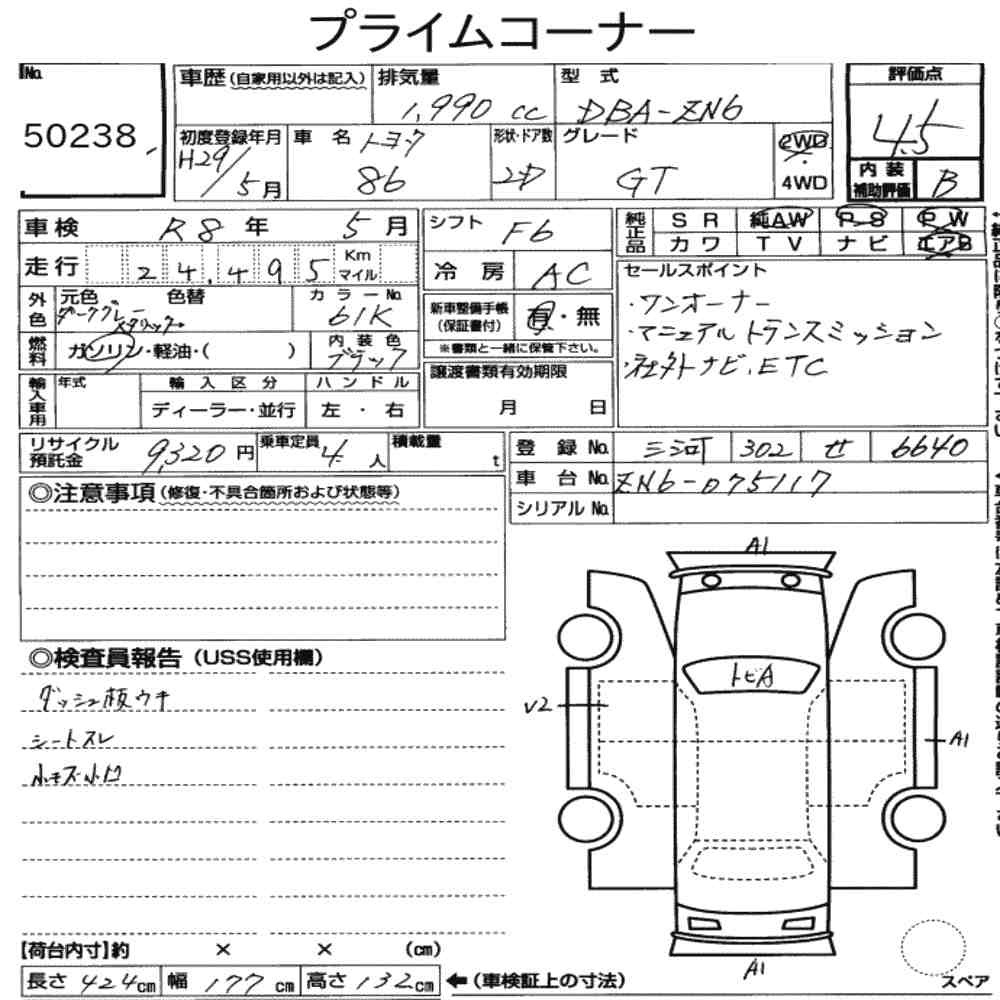 プライムコーナー
No. 50238
車歴(自家用以外は記入) 排気量 1,990 cc 型式 DBA-ZN6 評価点 4.5
初度登録年月 H29/5月 車名 トヨタ 86 形状・ドア数 2D グレード GT 2WD 4WD 内装補助評価 B
車検 R8年 5月 シフト F6 純正品 SR 純AW PS PW
カワ TV ナビ エアB
走行 24,495 Km マイル 冷房 AC
外色 元色 色替 ダークグレーメタリック カラーNo. 61K
新車整備手帳(保証書付) 有・無
※書類と一緒に保管下さい。
燃料 ガソリン・軽油・( ) 内装色 ブラック
セールスポイント
・ワンオーナー
・マニュアルトランスミッション
・社外ナビ、ETC
輸入車用 年式 輸入区分 ディーラー・並行 ハンドル 左・右
譲渡書類有効期限 月 日
リサイクル預託金 9,320円 乗車定員 4人 積載量 t
登録No. 三河 302 せ 6640
車台No. ZN6-075117
シリアルNo.
◎注意事項(修復・不具合箇所および状態等)
◎検査員報告(USS使用欄)
ダッシュ板ウキ
シートスレ
小キズ小凹
A1
トビA
V2
A1
A1
スペア
【荷台内寸】約 × × (cm)
長さ 424cm 幅 177cm 高さ 132cm ←(車検証上の寸法)